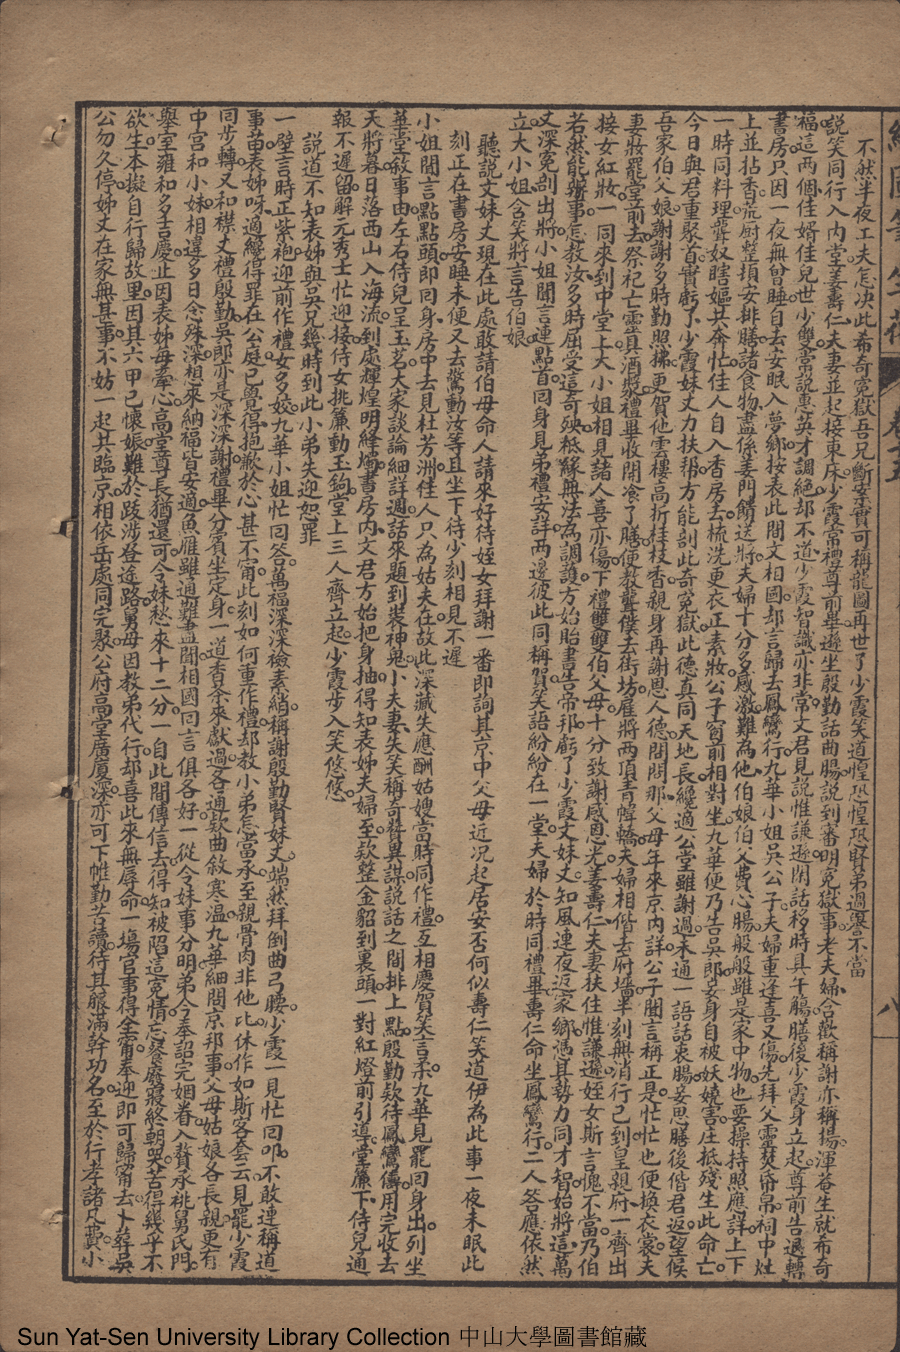 不然半夜工夫怎決此希奇寃獄吾兄斷案實可稱龍圖再世了少霞笑道惶恐惶恐賢弟過譽不當
說笑同行入內堂姜壽仁夫妻並起接東床少霞常禮尊前畢遜坐殷勤話曲腸說到審明寃獄事老夫婦合歡稱謝亦稱揚渾眷生就希奇
福這兩個佳婿佳兒世少雙常說惠英才調絕却不道少霞智識亦非常文君見說惟謙遜閑話移時具午膓膳後少霞身立起尊前告過轉
書房只因一夜無曾睡自去安眠入夢鄉按表此間文相國却言歸去鳳鸞行九華小姐吳公子夫婦重逢喜又傷先拜父靈焚帛帛祠中灶
上並拈香荒厨整頓安排膳諸食物盡係姜門餽送將夫婦十分多感激難為他伯娘伯父費心腸般般雖是家中物也要操持照應詳上下
一時同料理聾奴瞎嫗共奔忙佳人自入香房去梳洗更衣正素妝公子窗前相對坐九華便乃告吳郎妾身自被妖嬈害庄抵殘生此命亡
今日與君重聚首實虧了少霞妹丈力扶帮方能剖此奇寃獄此德真同天地長纔適公堂雖謝過未通一語話衷腸妾思膳後偕君返望候
吾家伯父娘謝謝多時勤照拂更賀他雲樓高折桂枝香親身再謝恩人德問問那父母年來京內詳公子聞言稱正是忙忙也便換衣裳夫
妻將罷堂前去祭祀亡靈具酒漿禮畢收開飡了膳便教聾僕去街坊雇將兩頂青幃轎夫婦相偕去府墻半刻無消行已到皇親府一齊出
接女紅妝一同來到中堂上大小姐相見諸人喜亦傷下禮雙雙伯父母十分致謝感恩光姜壽仁夫妻扶住惟謙遜姪女斯言愧不當乃伯
若然能辦事怎教汝多時屈受這奇殃柢緣無法為調護方始貽書告帝邦虧了少霞文妹丈知風連夜返家鄉憑其勢力同才智始將這萬
丈深寃剖出將小姐聞言連點首回身見弟禮安詳兩邊彼此同稱賀笑語紛紛在一堂夫婦於時同禮畢壽仁命坐鳳鸞行二人答應依然
立大小姐含笑將言告伯娘
聽說文妹丈現在此處敢請伯母命人請來好待姪女拜謝一番即詢其京中父母近况起居安否何似壽仁笑道伊為此事一夜未眠此
刻正在書房安睡未便又去驚動汝等且坐下待少刻相見不遲
小姐聞言點點頭即回身房中去見杜芳洲佳人只為姑夫在故此深藏失應酬姑嫂當時同作禮互相慶賀笑言柔九華見罷回身出列坐
華堂敘事由左右侍兒呈玉茗大家談論細詳週話來題到裝神鬼小夫妻失笑稱奇贊異謀說話之間排上點殷勤欵待鳳鸞儔用完收去
天將暮日落西山入海流到處輝煌明絳燭書房內文君方始把身抽得知表姊夫婦至欵整金貂到裏頭一對紅燈前引導堂簾下侍兒通
報不遲留解元秀士忙迎接侍女挑簾動玉鉤堂上三人齊立起少霞步入笑悠悠
說道不知表姊與吳兄幾時到此小弟失迎恕罪
一壁言時正紫袍迎前作禮女多姣九華小姐忙回答萬福深深檢素綃稱謝殷勤賢妹丈端然拜倒曲弓腰少霞一見忙回叩不敢連稱道
事苗表姊呀適纔得罪在公庭已覺得抱歉於心甚不甯此刻如何重作禮却教小弟怎當承至親骨肉非他比休作如斯客套云見罷少霞
同步轉又和襟丈禮殷勤吳郎亦是深深謝禮畢分賓坐定身一道香茶來獻過各通欵曲敘寒温九華細問京邦事父母姑娘各長親更有
中宮和小妹相違多日念殊深想來納福皆安適魚雁雖通難盡聞相國回言俱各好一從今妹事分明弟今奉詔完姻眷入贅承祧舅氏門
舉室雍和多吉慶止因表姊每牽心高堂尊長猶還可令妹愁來十二分一自此間傳信去得知被陷這寃情忘餐廢寢終朝哭苦得幾乎不
欲生本擬自行歸故里因其六甲已懷娠難於跋涉登途路舅母因教弟代行却喜此來無辱命一塲官事得全甯奉迎即可歸甯去卜葬吳
公勿久停姊丈在家無甚事不妨一起共臨京相依岳處同完聚公府高堂廣廈深亦可下帷勤苦讀待其服滿幹功名至於行孝諸凡費小
八
Sun Yat-Sen University Library Collection 中山大學圖書館藏